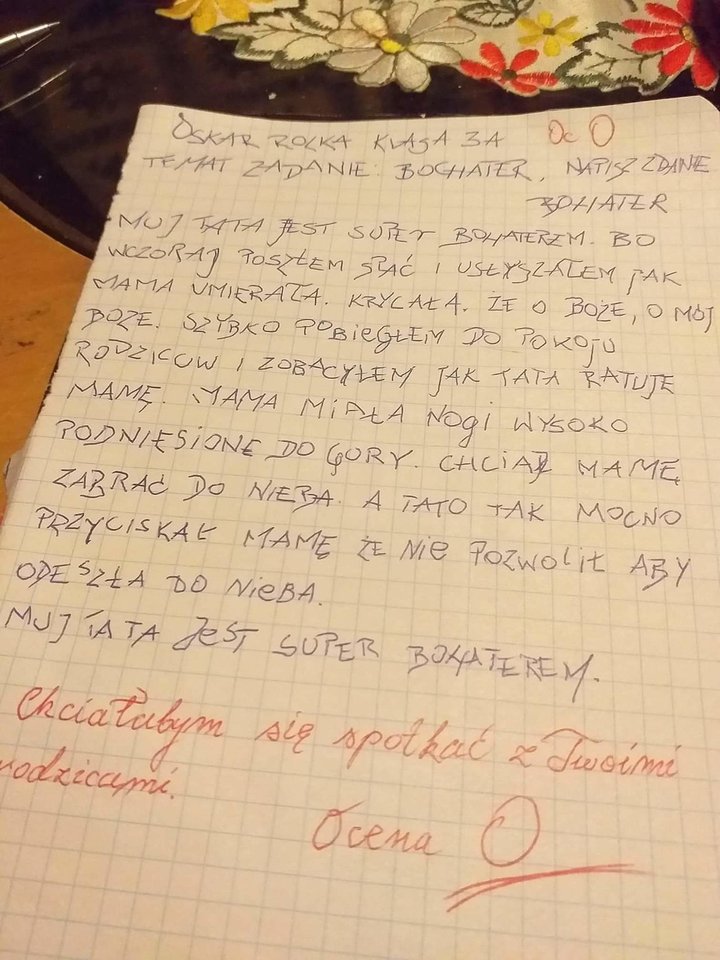 OSKAR ROLKA KLASA 3A Oc O
TEMAT ZADANIE: BOCHATER, NAPISZ ZDANIE
BOHATER
MUJ TATA JEST SUPER BOHATEREM. BO
WCZORAJ POSZŁEM SPAĆ I USŁYSZAŁEM JAK
MAMA UMIERAŁA. KRYCAŁA. ŻE O BOŻE, O MÓJ
BOŻE. SZYBKO POBIEGŁEM DO POKOJU
RODZICOW I ZOBACYŁEM JAK TATA RATUJE
MAMĘ. MAMA MIAŁA NOGI WYSOKO
PODNIĘSIONE DO GÓRY. CHCIAŁ MAMĘ
ZABRAĆ DO NIEBA. A TATO TAK MOCNO
PRZYCISKAŁ MAMĘ ŻE NIE POZWOLIŁ ABY
ODESZŁA DO NIEBA.
MUJ TATA JEST SUPER BOHATEREM.
Chciałabym się spotkać z Twoimi
rodzicami.
Ocena O